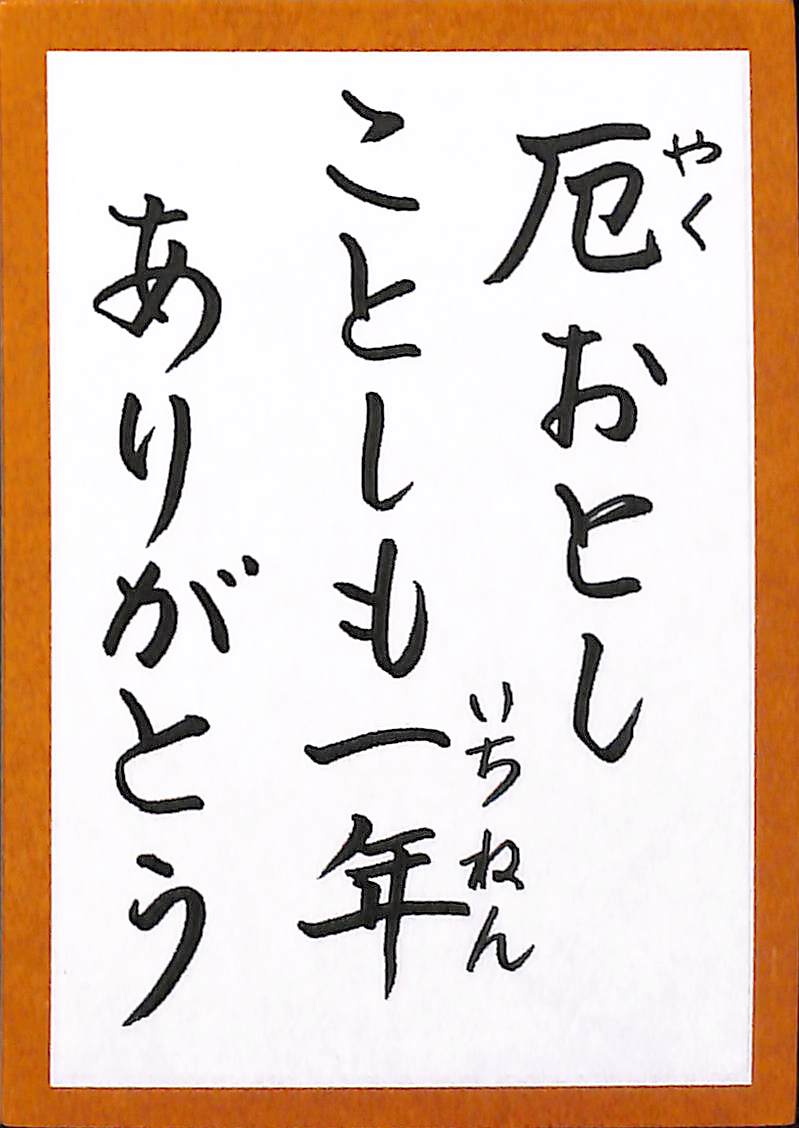 厄おとし
ことしも一年
ありがとう
やく
いちねん